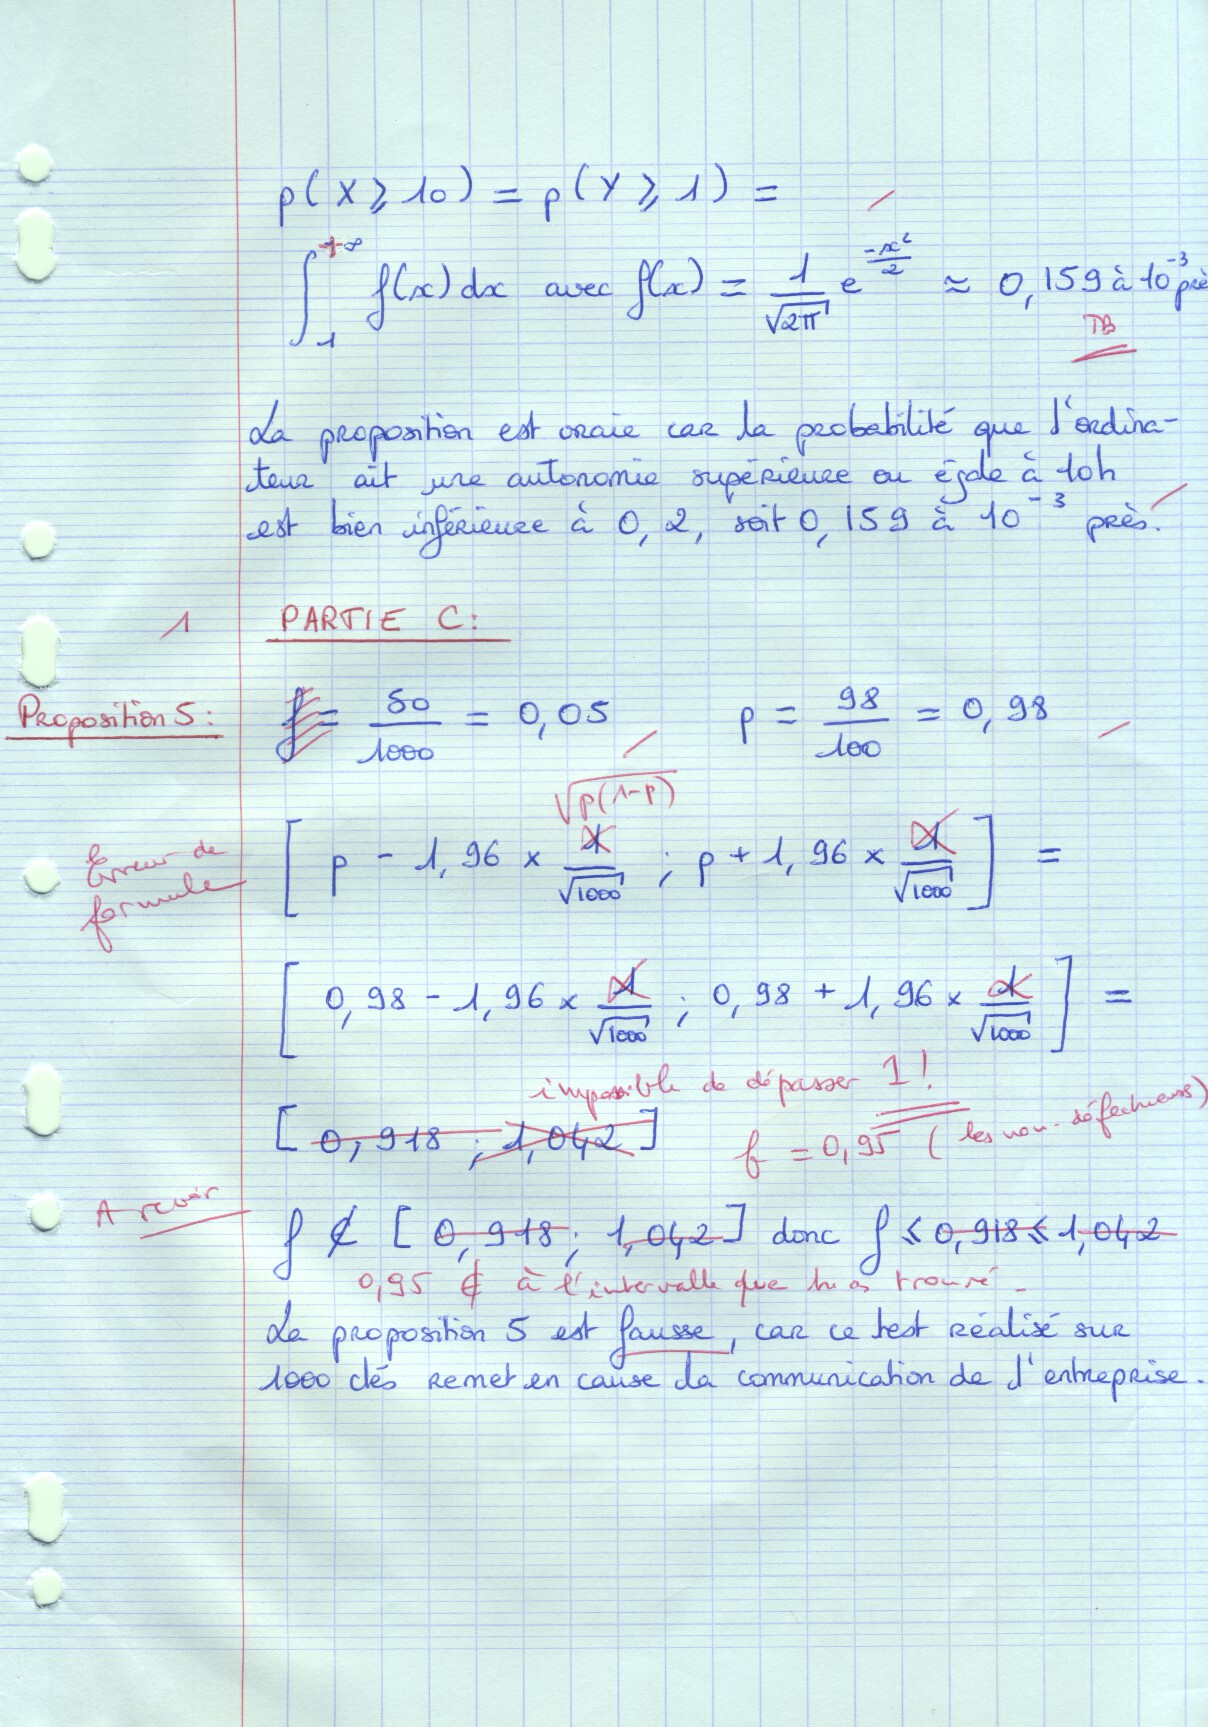 p(X ⩾ 10) = p(Y ⩾ 1) =
∫₁^+∞ f(x)dx avec f(x) = 1/√2π e^(-x²/2) ≈ 0,159 à 10⁻³ près
TB
La proposition est vraie car la probabilité que l'ordina-
teur ait une autonomie supérieure ou égale à 10h
est bien inférieure à 0,2, soit 0,159 à 10⁻³ près.
1 PARTIE C:
Proposition 5: f = 50/1000 = 0,05 p = 98/100 = 0,98
√p(1-p)
Erreur de formule
[ p - 1,96 × 1/√1000 ; p + 1,96 × 1/√1000 ] =
[ 0,98 - 1,96 × 1/√1000 ; 0,98 + 1,96 × 1/√1000 ] =
impossible de dépasser 1 !
[ 0,918 ; 1,042 ] f = 0,95 (les non-défectueuses)
A revoir
f ∉ [ 0,918 ; 1,042 ] donc f ⩽ 0,918 ⩽ 1,042
0,95 ∉ à l'intervalle que tu as trouvé.
La proposition 5 est fausse, car ce test réalisé sur
1000 clés remet en cause la communication de l'entreprise.